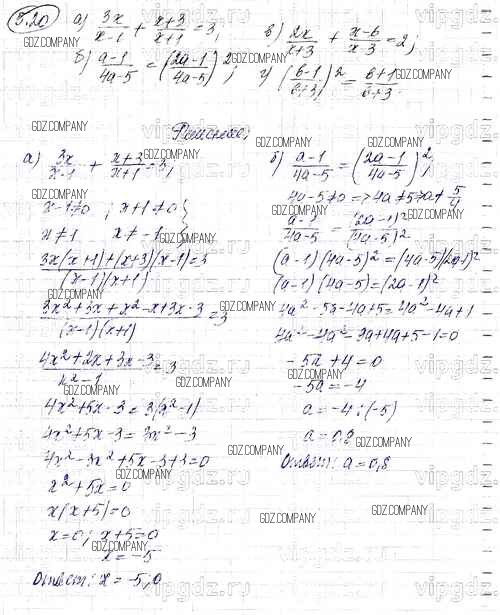 5.20 а) 3x/(x-1) + (x+3)/(x+1) = 3; в) 2x/(x+3) + (x-6)/(x-3) = 2;
б) (a-1)/(4a-5) = ((2a-1)/(4a-5))²; г) ((в-1)/(в+3))² = (в+1)/(в+3).
Решение:
а) 3x/(x-1) + (x+3)/(x+1) = 3;
x-1≠0; x+1≠0 }
x≠1 x≠-1
(3x(x+1)+(x+3)(x-1))/((x-1)(x+1)) = 3
(3x²+3x+x²-x+3x-3)/((x-1)(x+1)) = 3
(4x²+2x+3x-3)/(x²-1) = 3
4x²+5x-3=3(x²-1)
4x²+5x-3=3x²-3
4x²-3x²+5x-3+3=0
x²+5x=0
x(x+5)=0
x=0; x+5=0
x=-5
Ответ: x=-5;0
б) (a-1)/(4a-5) = ((2a-1)/(4a-5))²;
4a-5≠0 => 4a≠5 => a≠5/4
(a-1)/(4a-5) = (2a-1)²/(4a-5)²
(a-1)(4a-5)²=(4a-5)(2a-1)²
(a-1)(4a-5)=(2a-1)²
4a²-5a-4a+5=4a²-4a+1
4a²-4a²-9a+4a+5-1=0
-5a+4=0
-5a=-4
a=-4:(-5)
a=0,8
Ответ: a=0,8
GDZ.COMPANY
vipgdz.ru